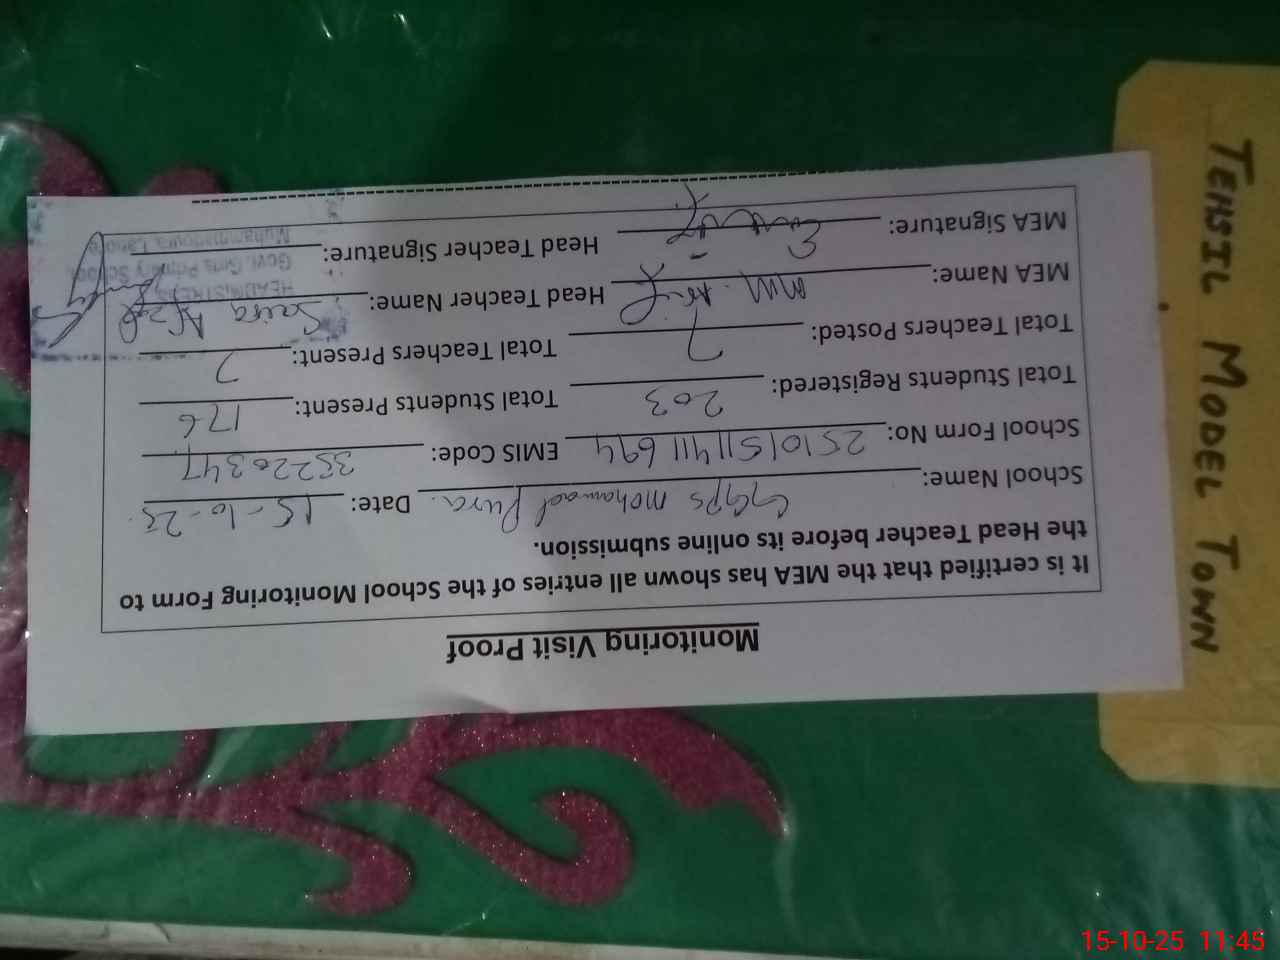 Monitoring Visit Proof
It is certified that the MEA has shown all entries of the School Monitoring Form to
the Head Teacher before its online submission.
School Name: GGPS mohamad Pura. Date: 15-10-25.
School Form No: 2510151141169 4 EMIS Code: 35220347
Total Students Registered: 203 Total Students Present: 176
Total Teachers Posted: 7 Total Teachers Present: 7
MEA Name: Head Teacher Name: Saira Afzal
MEA Signature: Head Teacher Signature:
HEADMISTRESS
Govt. Girls Primary School
Muhammadpura, Lahore
TEHSIL MODEL TOWN
15-10-25 11:45